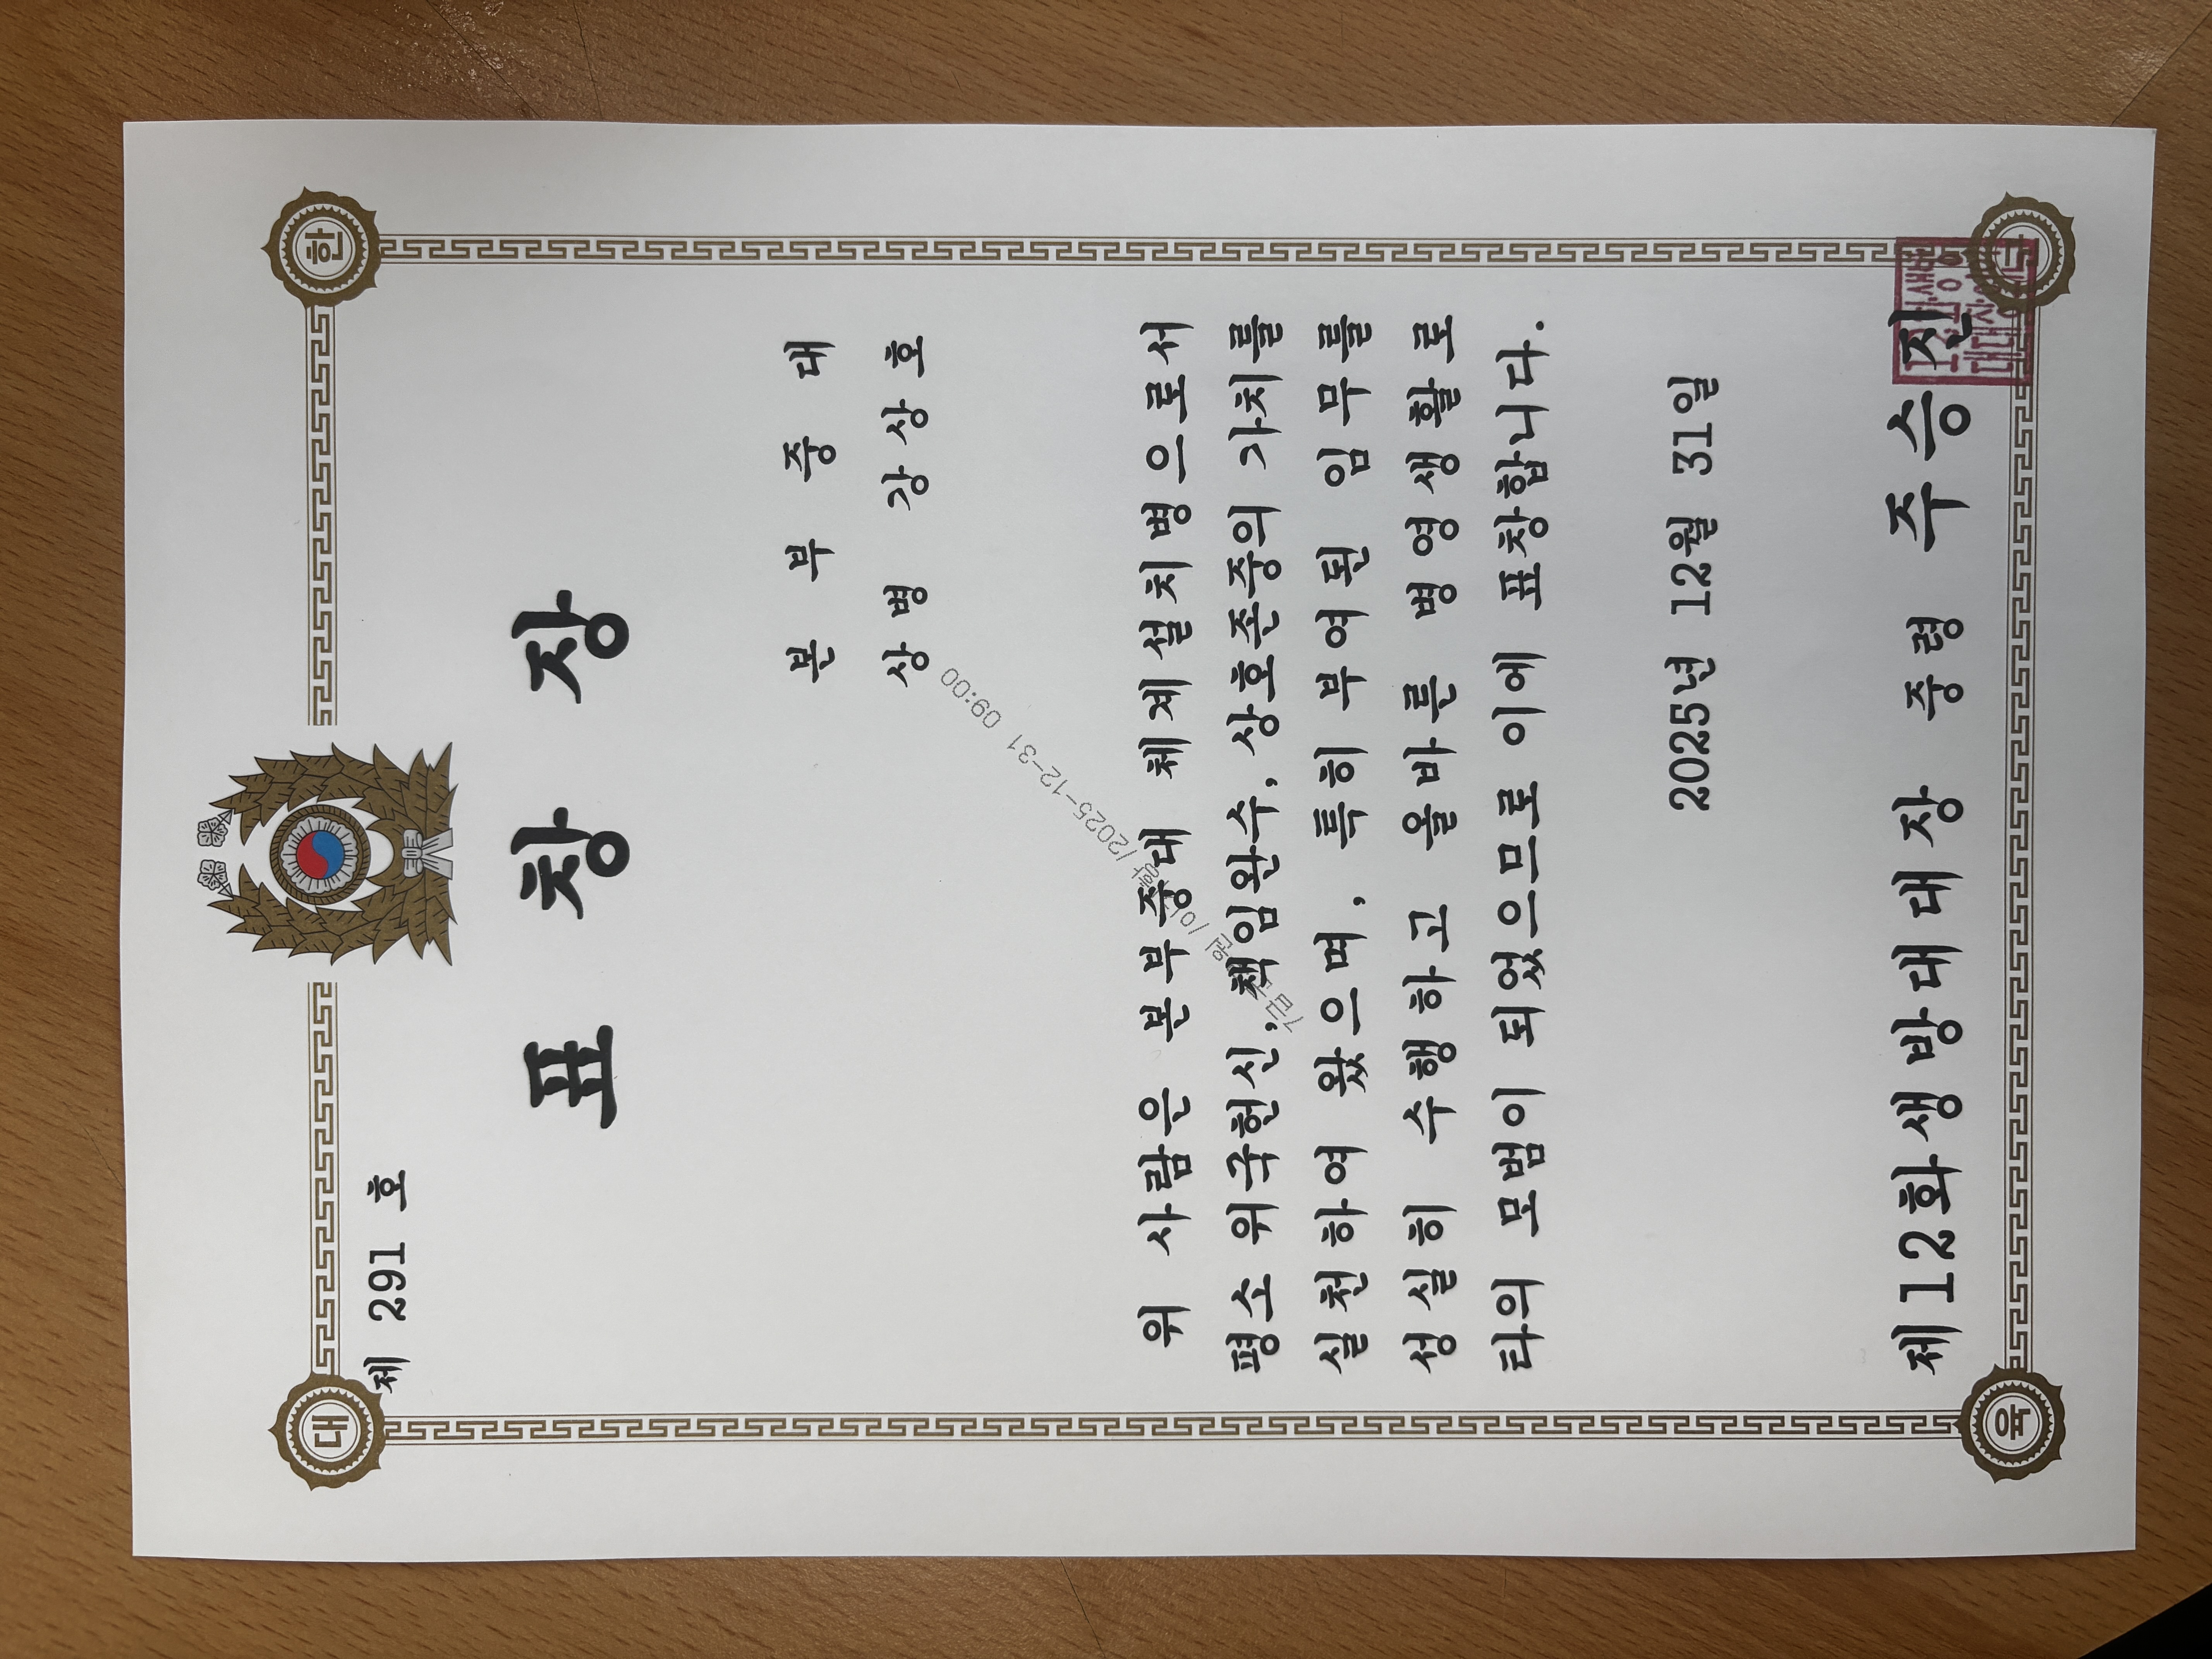 대 한
제 291 호
표 창 장
본 부 중 대
상병 강상호
위 사람은 본부중대 체계설치병으로서
평소 위국헌신, 책임완수, 상호존중의 가치를
실천하여 왔으며, 특히 부여된 임무를
성실히 수행하고 올바른 병영생활로
타의 모범이 되었으므로 이에 표창합니다.
/2025-12-31 09:00
2025년 12월 31일
제12화생방대대장 중령 주승진
육